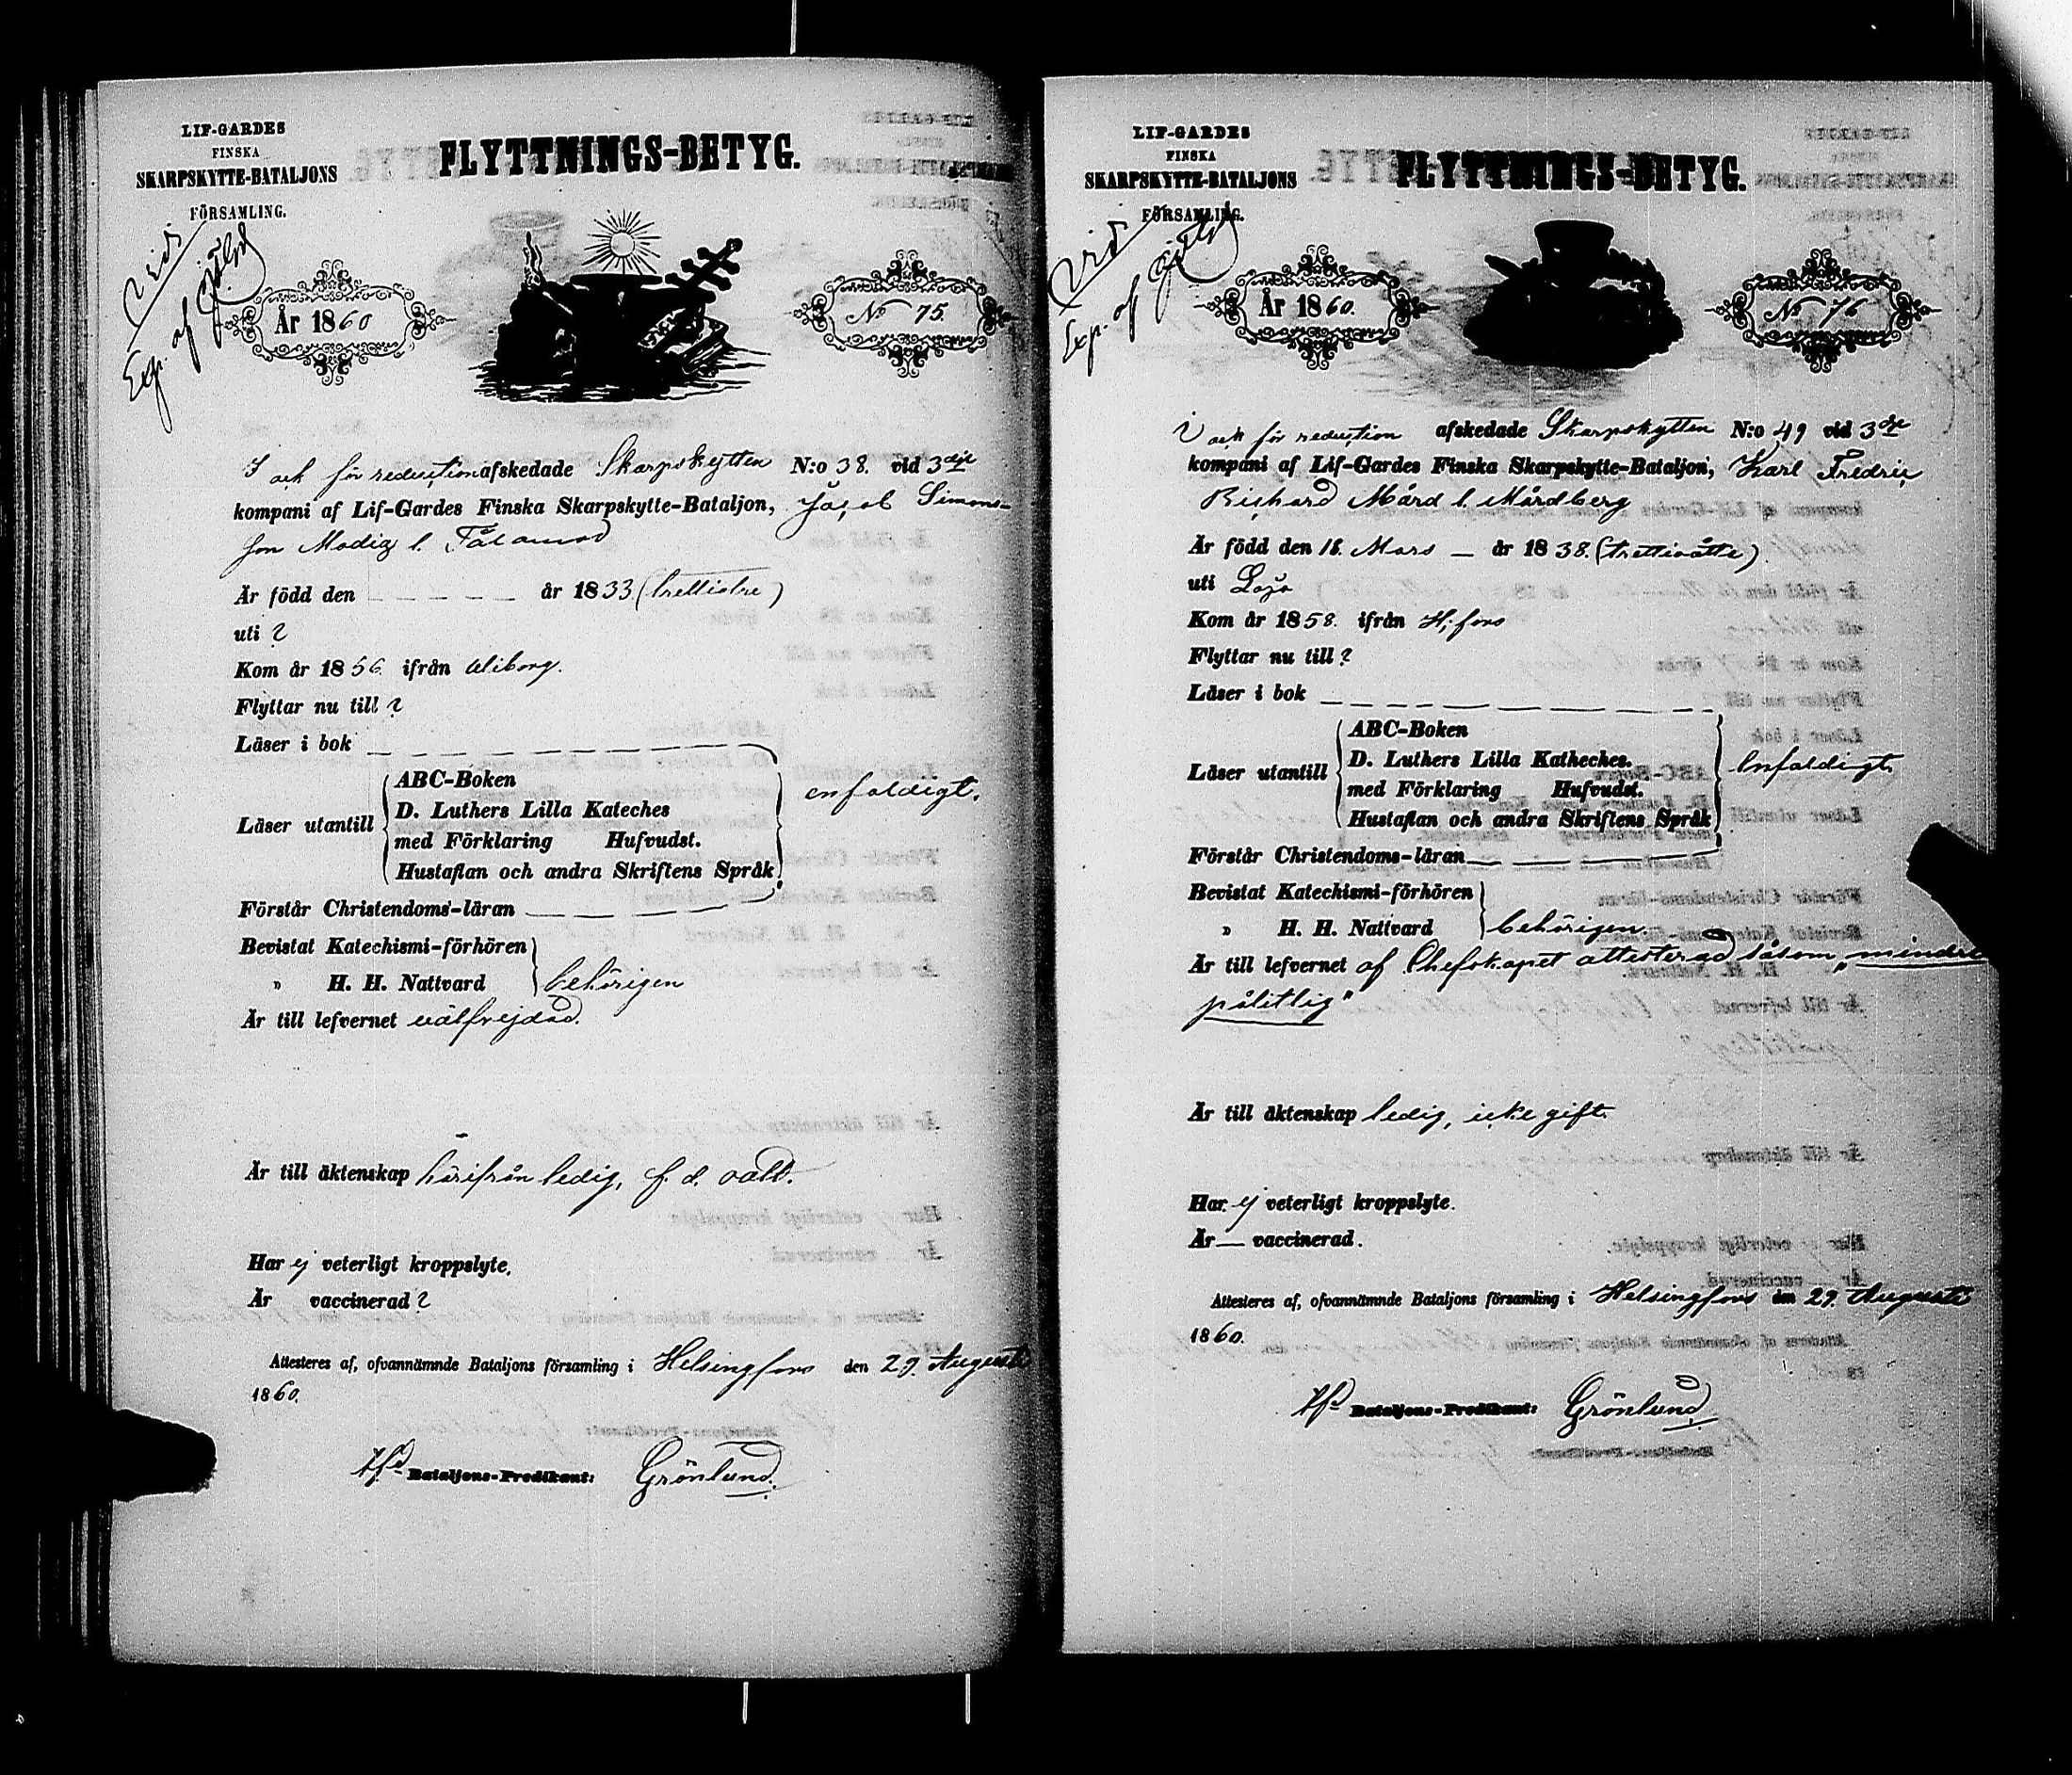 LIF-GARDES
FINSKA
SKARPSKYTTE-BATALJONS
FÖRSAMLING.
FLYTTNINGS-BETYG.
Exp. af
År 1860
No 75.
I och för reduction afskedade Skarpskytten N:o 38. vid 3dje
kompani af Lif-Gardes Finska Skarpskytte-Bataljon, Jacob Simons-
son Modig l. Tålamod
Är född den — — — — år 1833 (trettiotre)
uti ?
Kom år 1856 ifrån Wiborg.
Flyttar nu till ?
Läser i bok
Läser utantill
ABC-Boken
D. Luthers Lilla Kateches
med Förklaring Hufvudst.
Hustaflan och andra Skriftens Språk
enfaldigt.
Förstår Christendoms-läran
Bevistat Katechismi-förhören
" H. H. Nattvard
behörigen
Är till lefvernet välfrejdad.
Är till äktenskap härifrån ledig, f. d.
Har ej veterligt kroppslyte.
Är vaccinerad ?
Attesteras af, ofvannämnde Bataljons församling i Helsingfors den 29. Augusti
1860.
Bataljons-Predikant: Grönlund.
LIF-GARDES
FINSKA
SKARPSKYTTE-BATALJONS
FÖRSAMLING.
FLYTTNINGS-BETYG.
Exp. af
År 1860.
No 76
I och för reduction afskedade Skarpskytten N:o 49 vid 3dje
kompani af Lif-Gardes Finska Skarpskytte-Bataljon, Karl Fredric
Richard Mård l. Mårdberg
Är född den 18. Mars — år 1838. (trettioåtta)
uti Lojo
Kom år 1858. ifrån H:fors
Flyttar nu till ?
Läser i bok
Läser utantill
ABC-Boken
D. Luthers Lilla Katheches.
med Förklaring Hufvudst.
Hustaflan och andra Skriftens Språk
Enfaldigt.
Förstår Christendoms-läran
Bevistat Katechismi-förhören
" H. H. Nattvard
behörigen.
Är till lefvernet af Chefskapet attesterad såsom „mindre
pålitlig"
Är till äktenskap ledig, icke gift.
Har ej veterligt kroppslyte.
Är — vaccinerad.
Attesteres af, ofvannämnde Bataljons församling i Helsingfors den 29. Augusti
1860.
Bataljons-Predikant: Grönlund